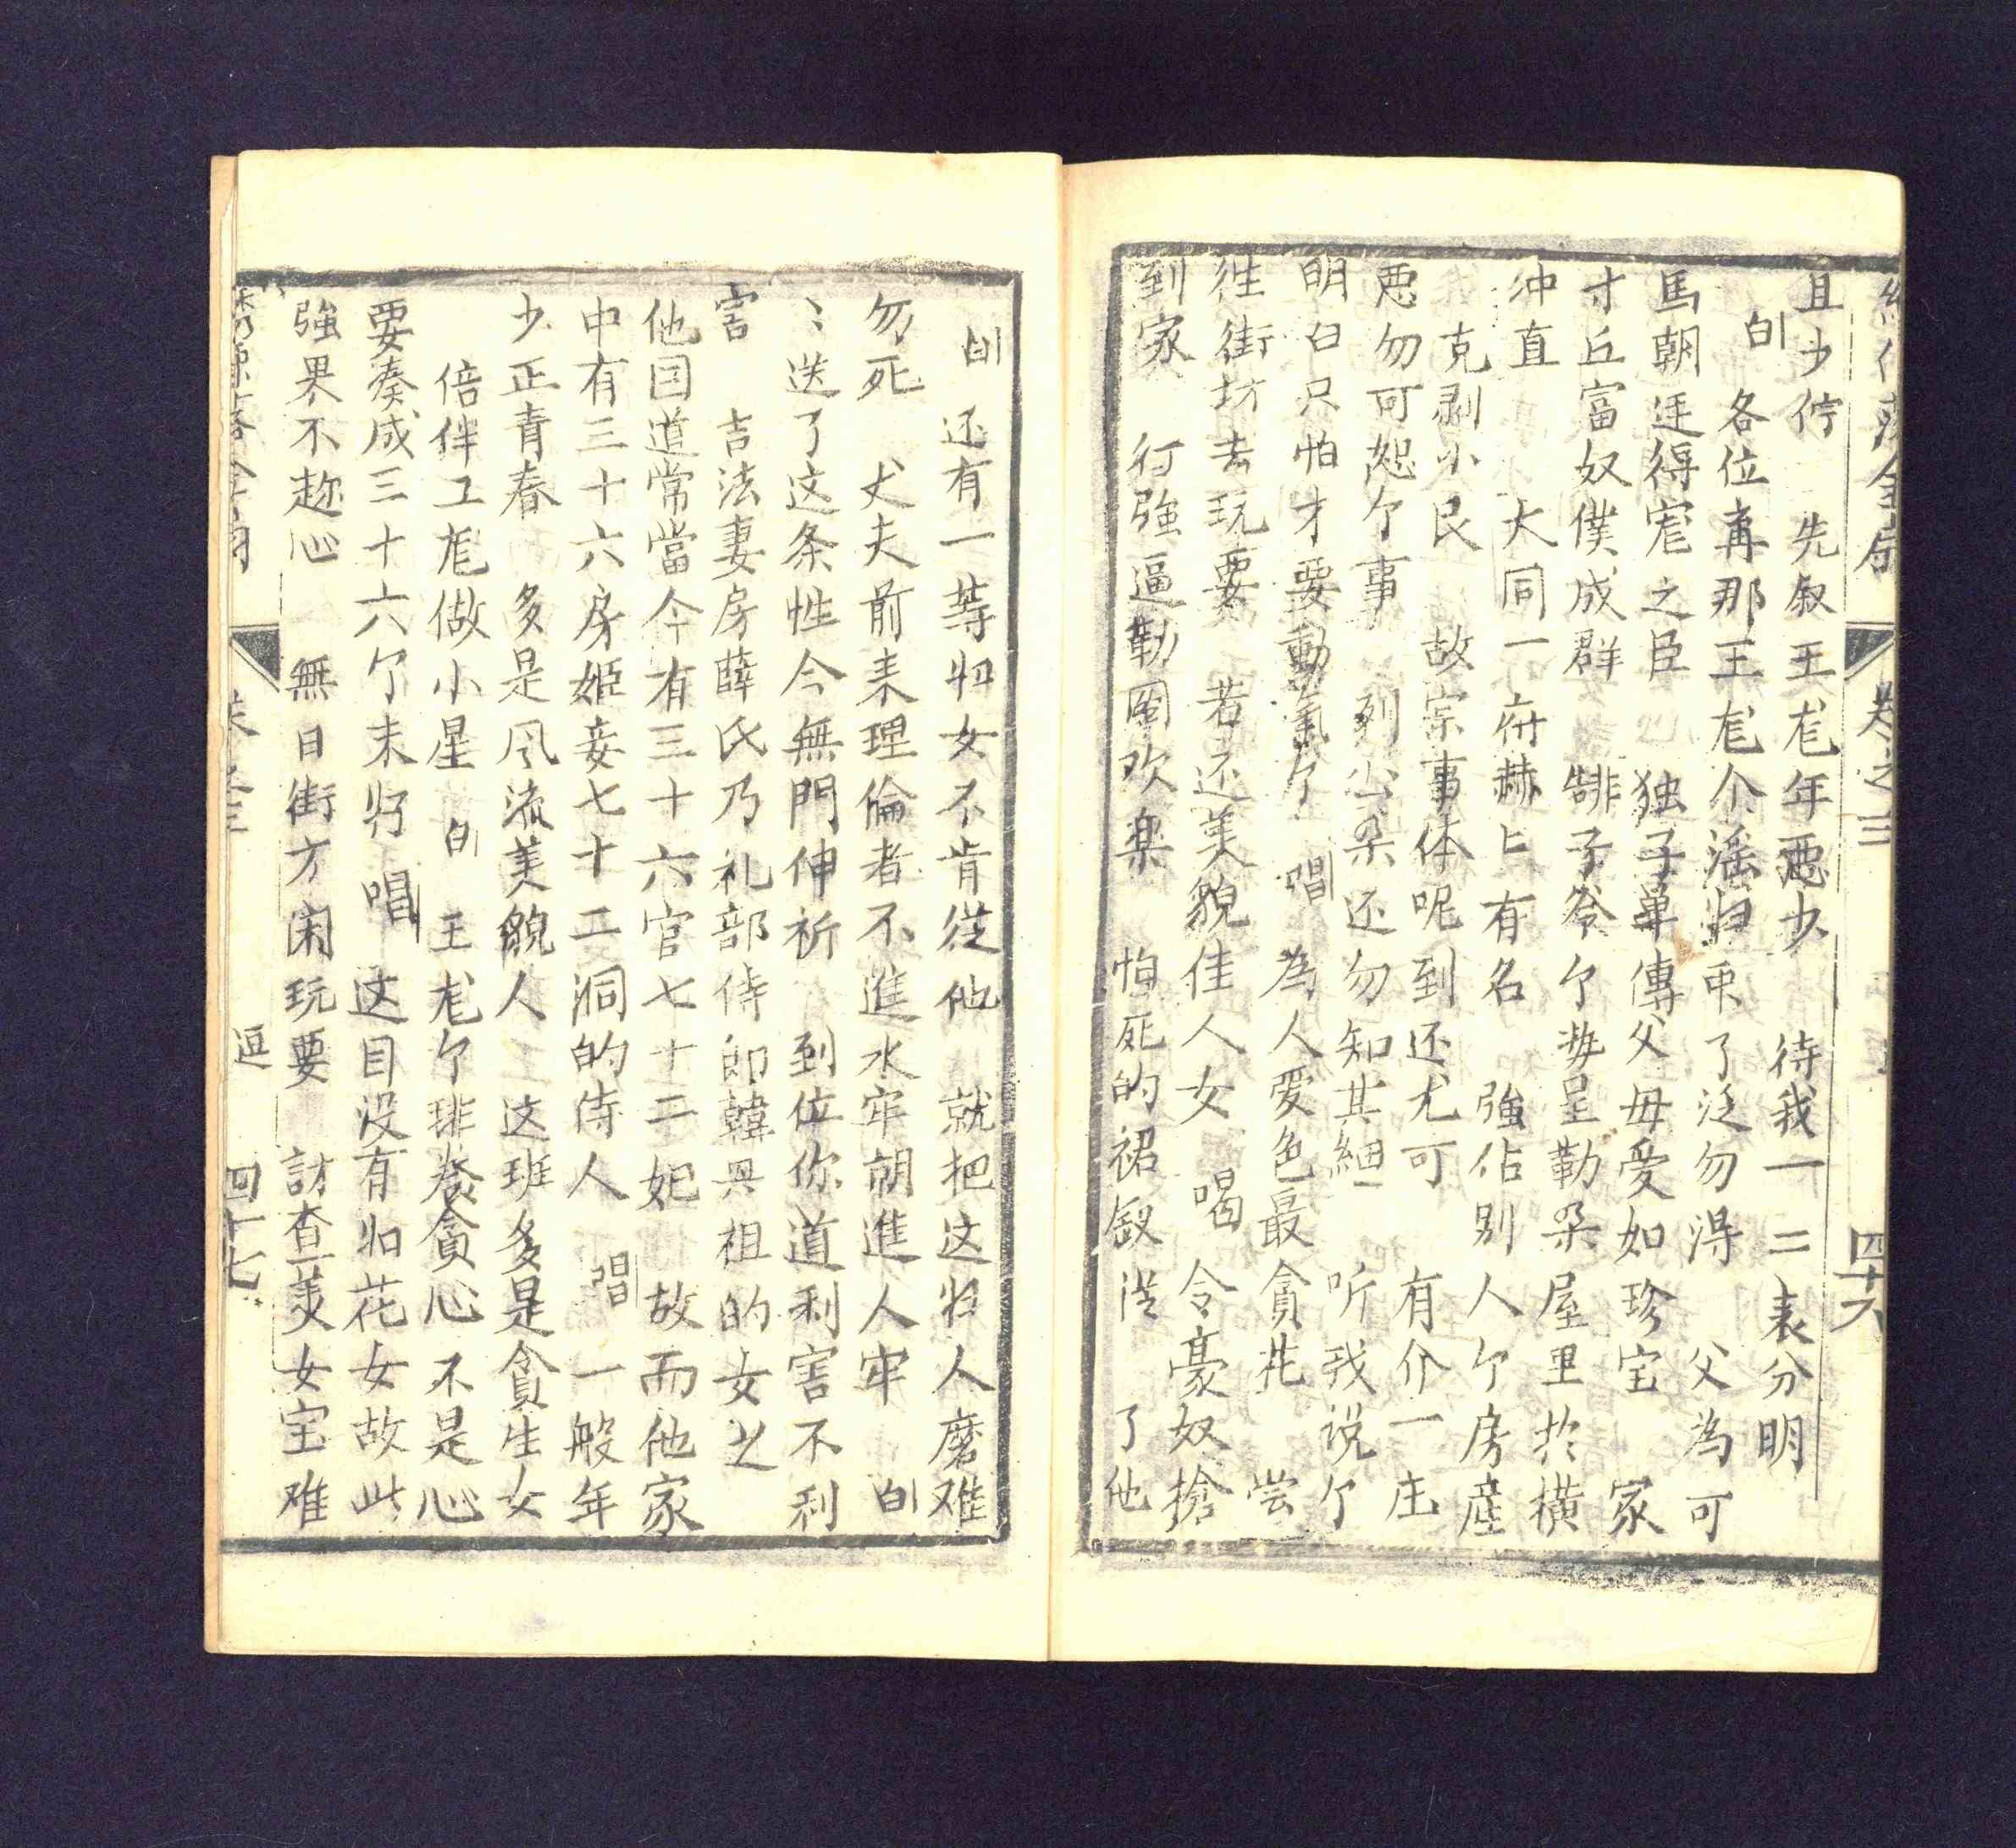 卷之三
四十六
且少停　先叙王尨年惡少　待我一二表分明
白　各位再那王尨个淫妇两了泛勿得　父為可
馬朝廷得寵之臣　独子單傳父毋爱如珍宝　家
才丘富奴僕成群　子爷个勢呈勒朵屋里扵橫
冲直　大同一府赫上有名　強佔别人个房産
克剥小民　故宗事体呢到还尤可　有介一庄
惡勿可恕个事　列公朵还勿知其細　听我说个
明白只怕才要動氣个　唱　為人愛色最貪花　尝
徃街坊去玩耍　若还美貌佳人女　喝　令豪奴搶
到家　行強逼勒图欢楽　怕死的裙釵從　了他
白　还有一等妇女不肯從他　就把这妇人磨难
勿死　丈夫前来理倫者不進水牢朝進人牢　白
〻送了这条性今無門伸祈　到位你道利害不利
害　吉法妻房薛氏乃礼部侍郎韓興祖的女之
他囯道常當今有三十六宫七十二妃　故而他家
中有三十六房姫妾七十二洞的侍人　唱　一般年
少正青春　多是风流美貌人　这班多是貪生女
倍伴工尨做小星　白　王尨个排塲貪心不足心
要奏成三十六个末好　唱　这目没有如花女故此
強界不趂心　無日街方閑玩耍　訪查美女宝难
逗
四十七